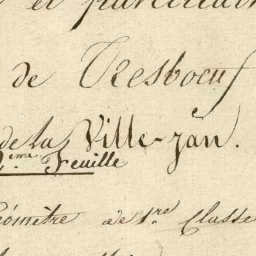 et parcellaire
de Tresboeuf
de la Ville-jan.
2.eme Feuille
Géomètre de 1.re Classe